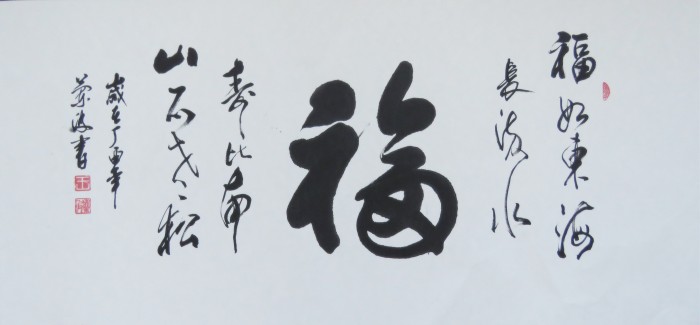 福如東海
長流水
福
寿比南
山不老松
歲在丁酉年
書